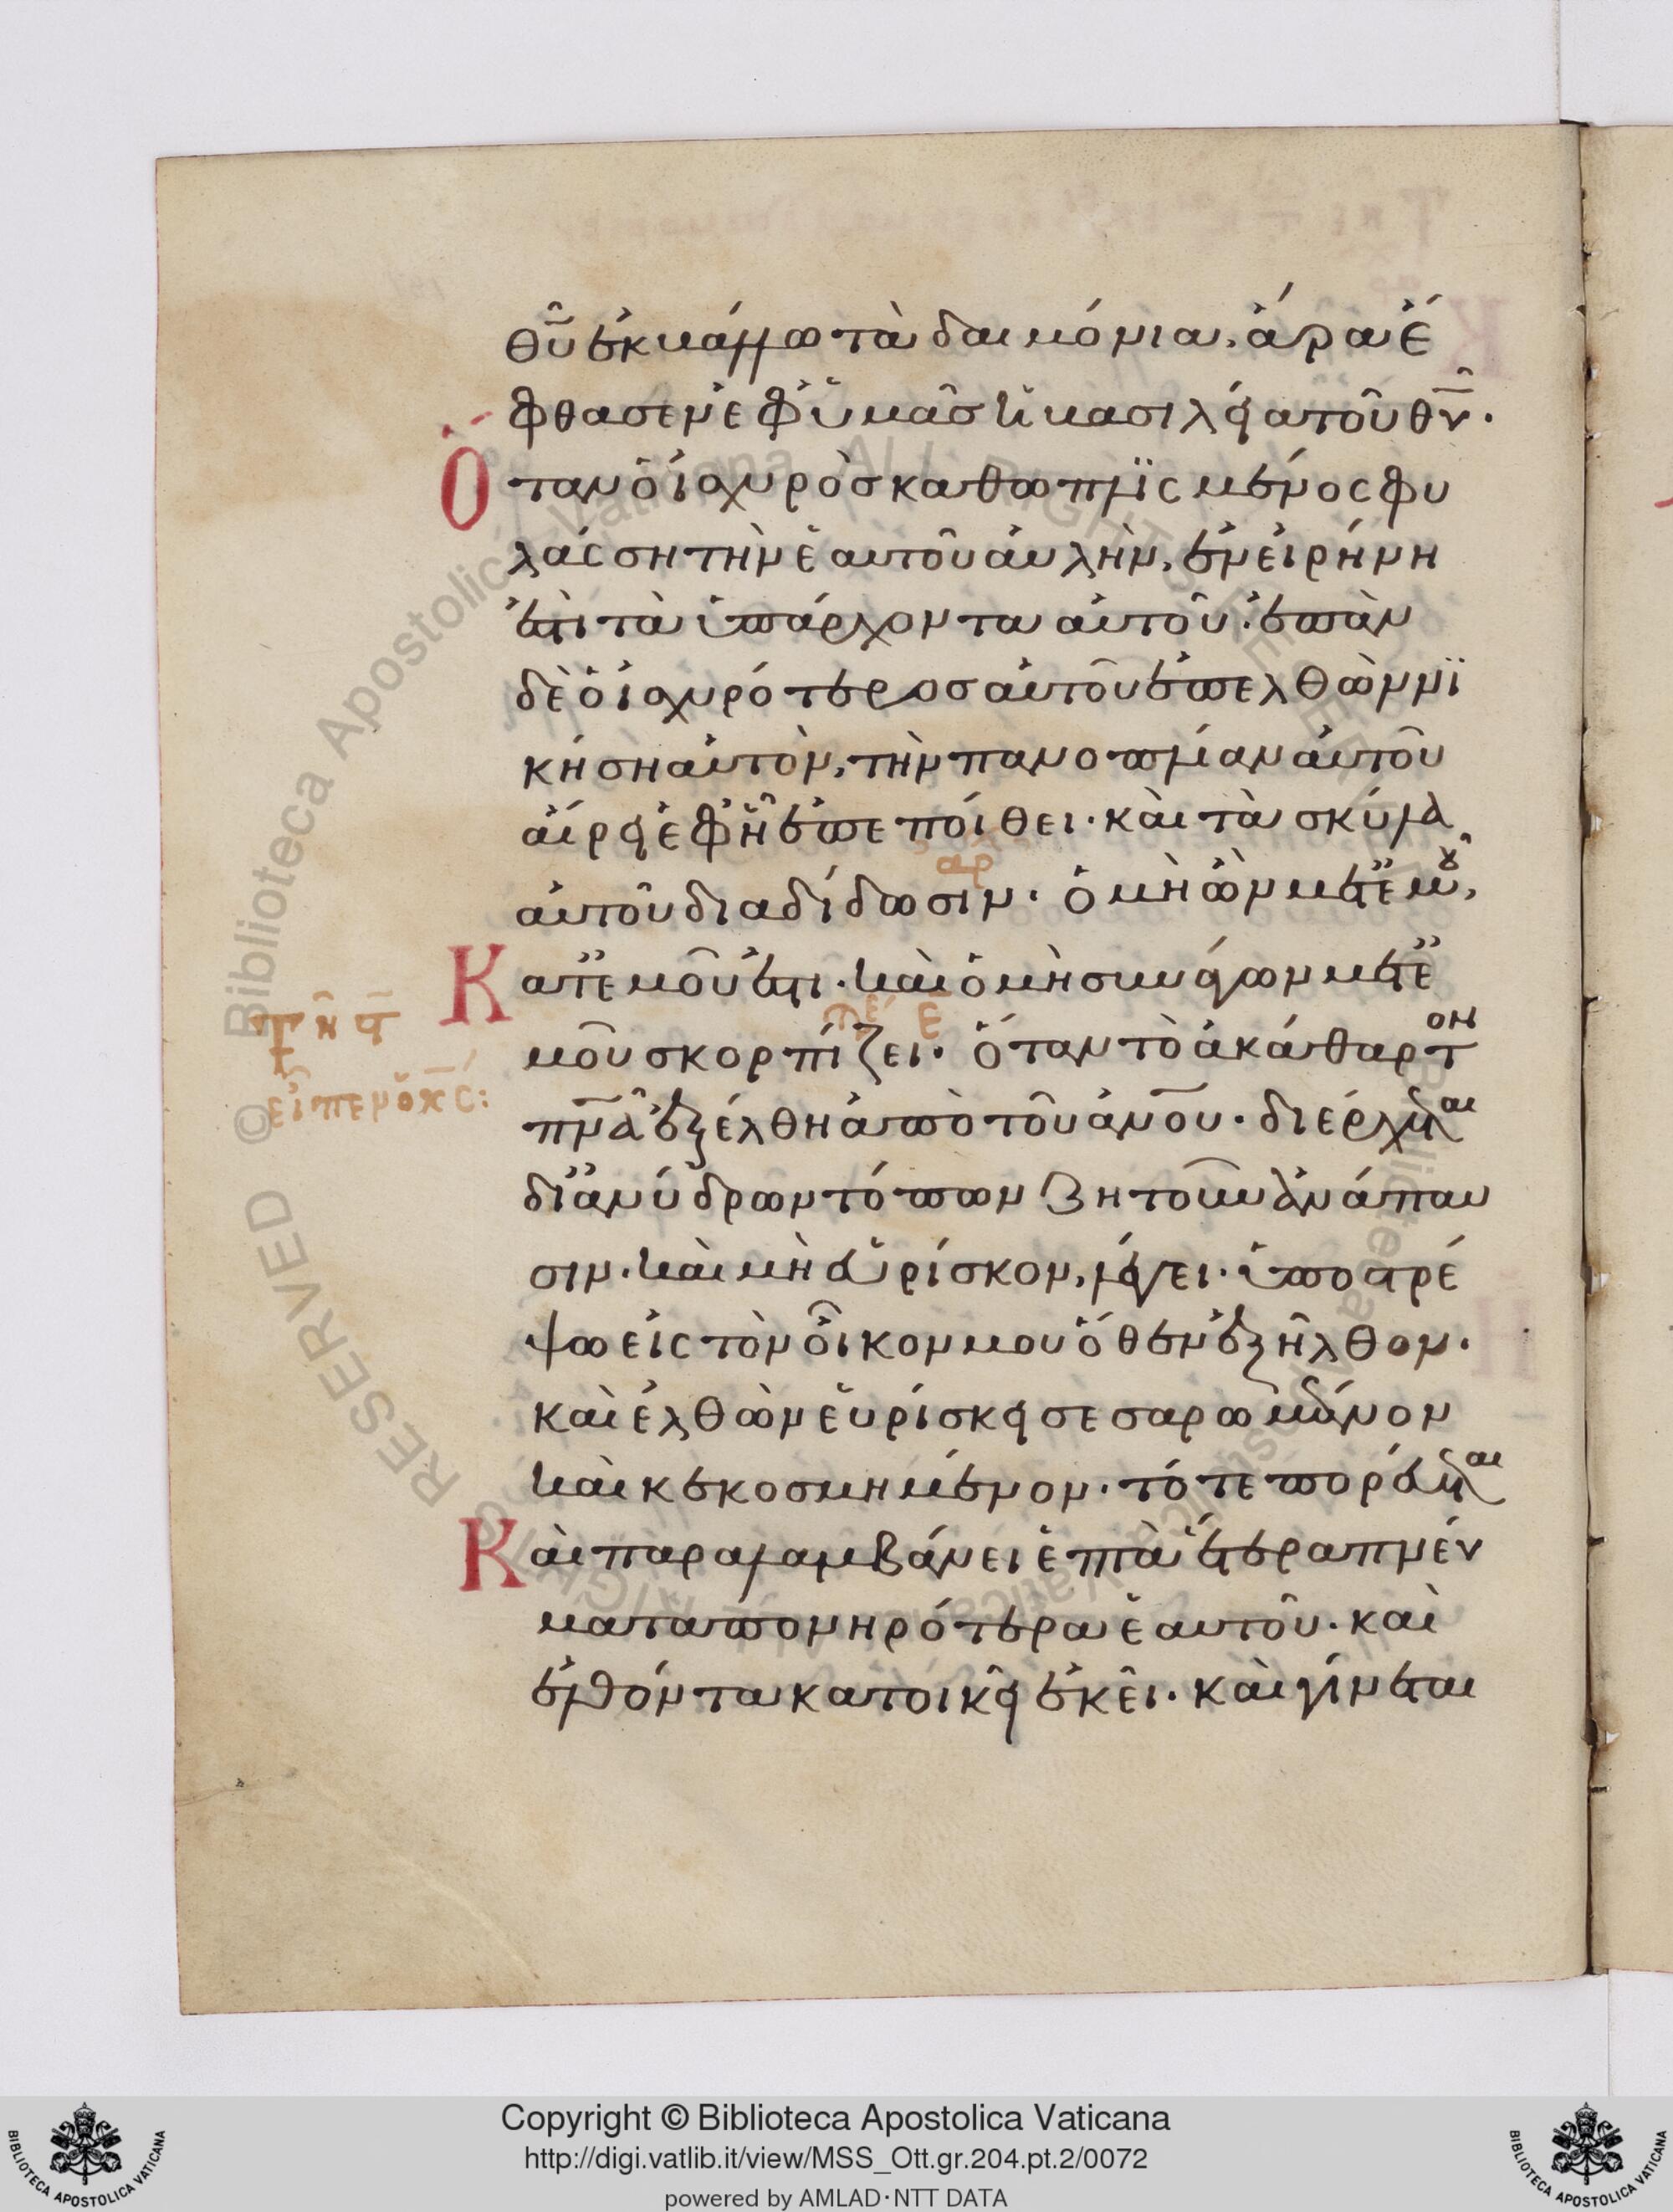 θῦ ἐκβάλλω τὰ δαιμόνια, ἄρα ἔ
φθασεν ἐφ ὑμᾶσ ἡ βασιλεία τοῦ θῦ.
Ὅταν ὁ ἰσχυρὸσ καθωπλϊσμένος φυ
λάσση τὴν ἑαυτοῦ αὐλὴν, ἐν εἰρήνη
ἐστὶ τὰ ὑπάρχοντα αὐτοῦ. ἐπὰν
δὲ ὁ ἰσχυρότεροσ αὐτοῦ ἐπελθὼν νϊ
κήση αὐτὸν, τὴν πανοπλίαν αὐτοῦ
αἴρει ἐφ ἧ ἐπεποίθει. καὶ τὰ σκύλα
αρ
αὐτοῦ διαδίδωσιν. ὁ μὴ ὢν μετ ἐμοῦ,
Κατ ἐμοῦ ἐστι. καὶ ὁ μὴ συνάγων μετ ἐ
Τη
εἶπεν ὁ κς:
μοῦ σκορπίζει. ὅταν τὸ ἀκάθαρτον
πνᾶ ἐξέλθη ἀπὸ τοῦ ἀνου. διέρχεται
δι ἀνύδρων τόπων ζητοῦν ἀνάπαυ
σιν. καὶ μὴ εὑρίσκον, λέγει. ὑποστρέ
ψω εἰς τὸν οἶκον μου ὅθεν ἐξῆλθον.
καὶ ἐλθὼν εὑρίσκει σεσαρωμένον
καὶ κεκοσμημένον. τότε πορεύεται
Καὶ παραλαμβάνει ἑπτὰ ἕτερα πνεύ
ματα πονηρότερα ἑαυτοῦ. καὶ
ἐλθόντα κατοικεῖ ἐκεῖ. καὶ γίνεται
Copyright © Biblioteca Apostolica Vaticana
http://digi.vatlib.it/view/MSS_Ott.gr.204.pt.2/0072
powered by AMLAD·NTT DATA
BIBLIOTECA APOSTOLICA VATICANA
BIBLIOTECA APOSTOLICA VATICANA